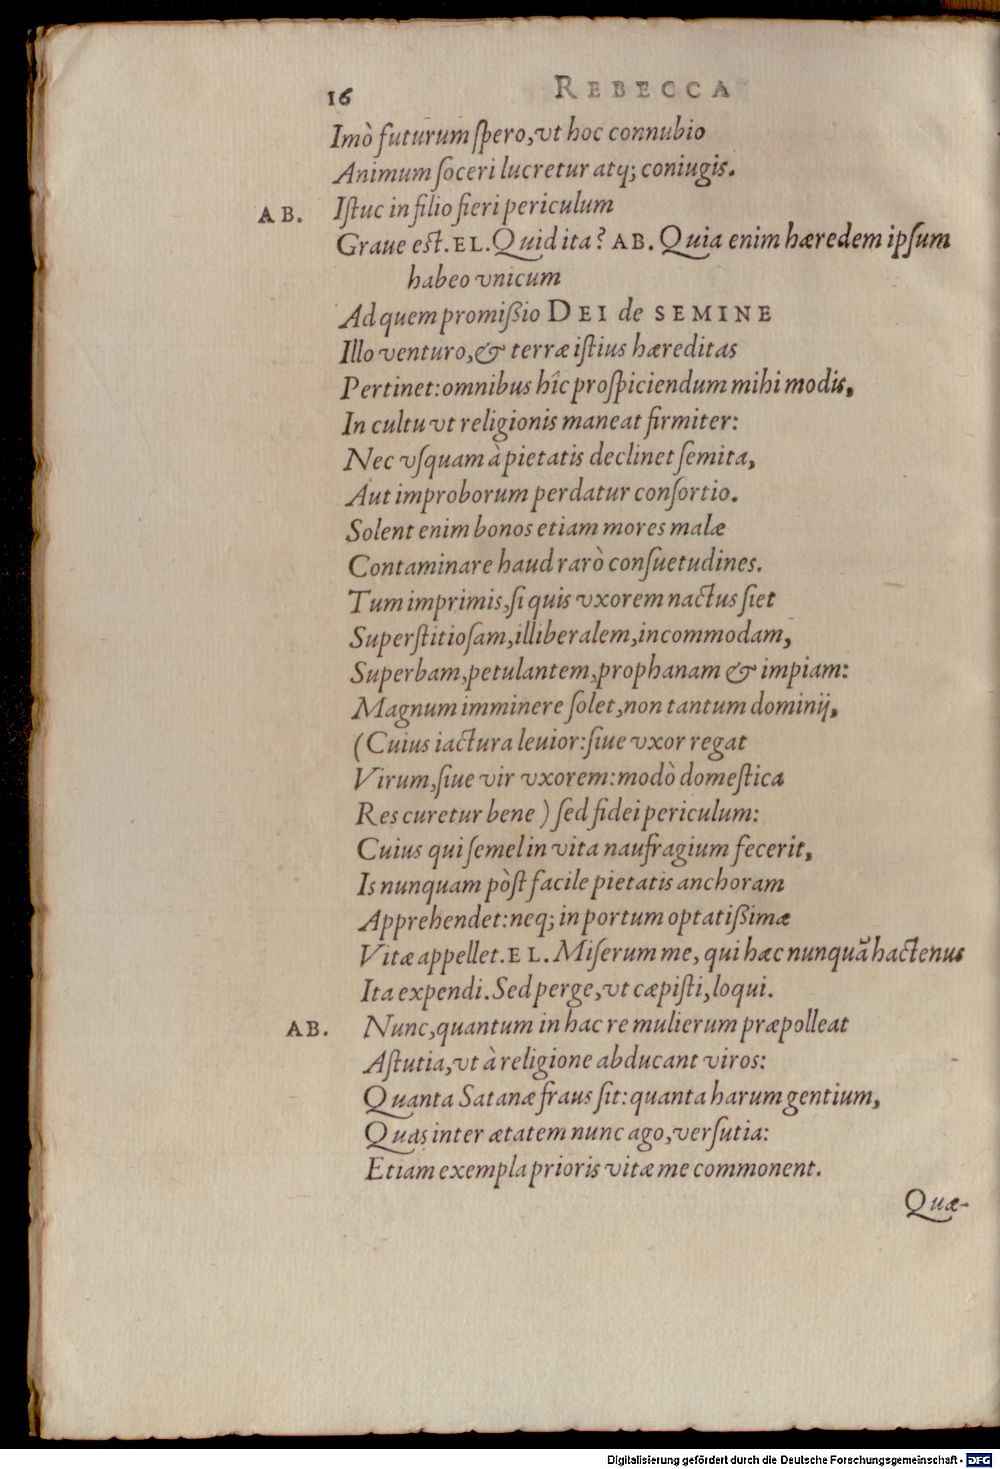 16 REBECCA
Imò futurum ſpero, vt hoc connubio
Animum ſoceri lucretur atq; coniugis.
AB. Iſtuc in filio fieri periculum
Graue est. EL. Quid ita? AB. Quia enim hæredem ipſum
habeo vnicum
Ad quem promißio DEI de SEMINE
Illo venturo, & terræ iſtius hæreditas
Pertinet: omnibus hîc proſpiciendum mihi modis,
In cultu vt religionis maneat firmiter:
Nec vſquam à pietatis declinet ſemita,
Aut improborum perdatur conſortio.
Solent enim bonos etiam mores malæ
Contaminare haud rarò conſuetudines.
Tum imprimis, ſi quis vxorem nactus ſiet
Superſtitioſam, illiberalem, incommodam,
Superbam, petulantem, prophanam & impiam:
Magnum imminere ſolet, non tantum dominij,
(Cuius iactura leuior: ſiue vxor regat
Virum, ſiue vir vxorem: modò domeſtica
Res curetur bene) ſed fidei periculum:
Cuius qui ſemel in vita naufragium fecerit,
Is nunquam pòſt facile pietatis anchoram
Apprehendet: neq; in portum optatißimæ
Vitæ appellet. EL. Miſerum me, qui hæc nunquã hactenus
Ita expendi. Sed perge, vt cæpiſti, loqui.
AB. Nunc, quantum in hac re mulierum præpolleat
Aſtutia, vt à religione abducant viros:
Quanta Satanæ fraus ſit: quanta harum gentium,
Quas inter ætatem nunc ago, verſutia:
Etiam exempla prioris vitæ me commonent.
Quæ-
Digitalisierung gefördert durch die Deutsche Forschungsgemeinschaft - DFG